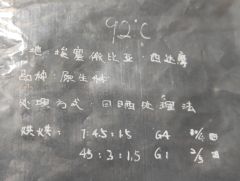 92°C
产地：埃塞俄比亚·西达摩
品种：原生种
处理方式：日晒处理法
烘焙：7:45:15 G4
45:3:1.5 G1 2/3